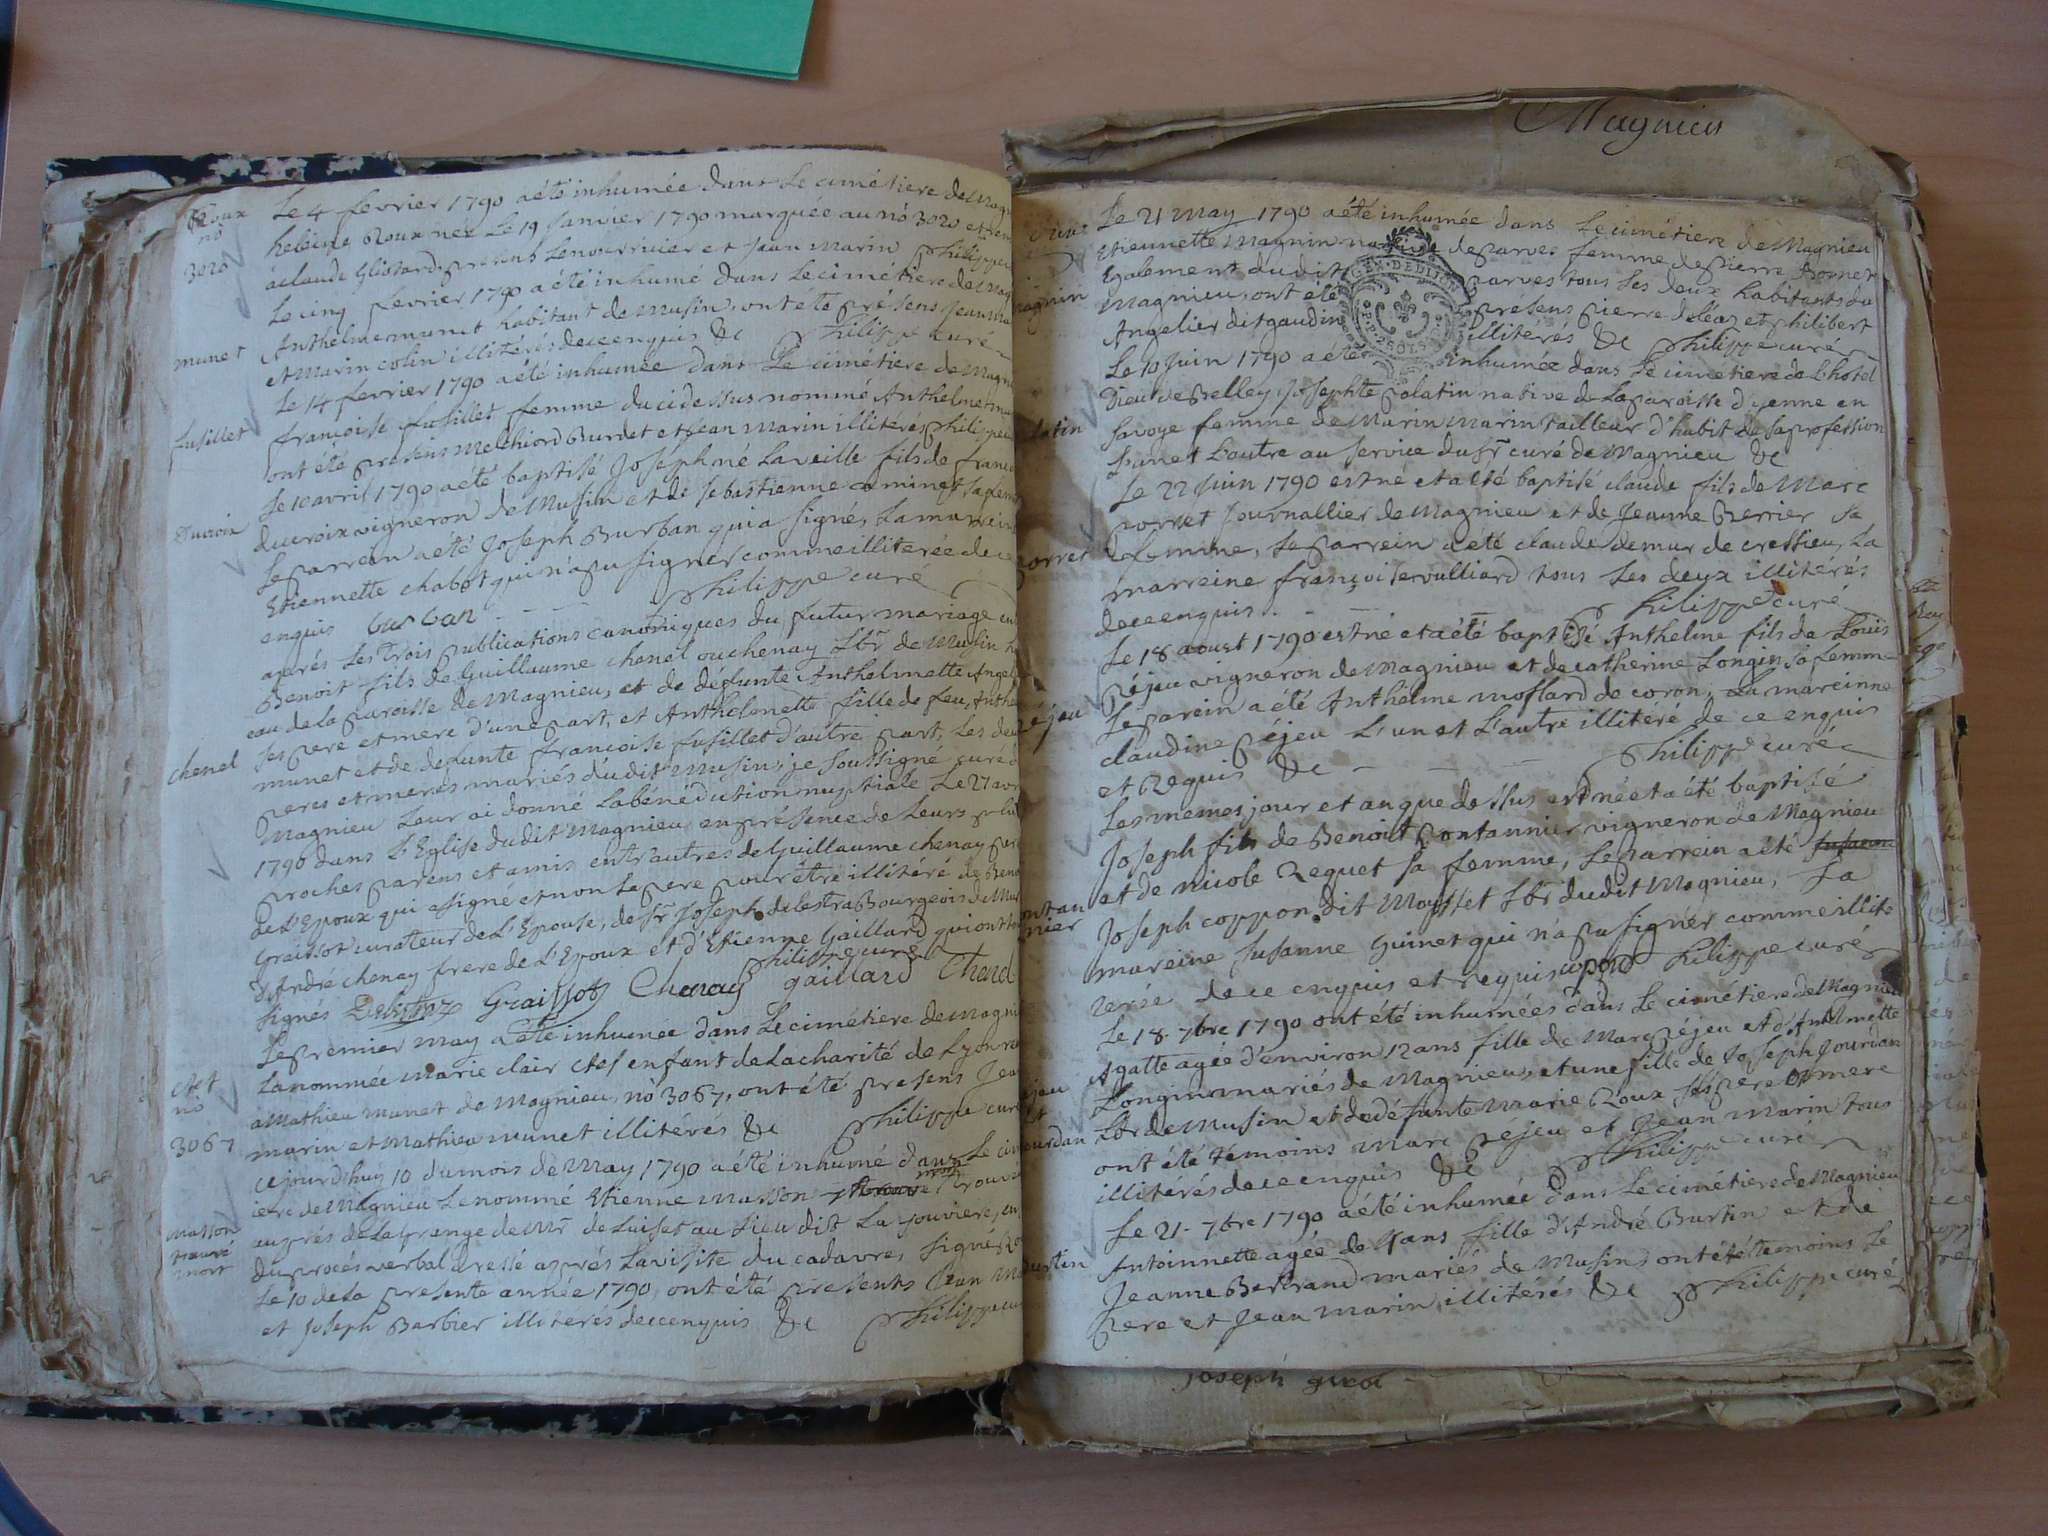 Roux
no
3020
Le 4 fevrier 1790 a été inhumée dans Le cimétiere de Magn
heleine Roux née Le 19 Janvier 1790 marquée au nò 3020 et
à claude Gliotard. presens Lenourricier et Jean Marin Philippe
Le cinq fevrier 1790 a été inhumé dans Le cimétiere de Mag
munet
Anthelme munet habitant de Musin, ont été présens Jean
et Marin colin illitérés de ce enquis &c Philippe curé
Le 14 fevrier 1790 a été inhumée dans Le cimétiere de Magn
fusillet
françoise fusillet femme du cidessus nommé Anthelme mu
ont été presens Melchiord Burdet et Jean Marin illitérés Philippe
Le 10 avril 1790 a été baptisé Joseph né La veille fils de franc
Ducroix
ducroix vigneron de Musin et de sebastienne caminet sa fem
Le parrein a été Joseph Burban qui a signé, La marreine
Etiennette chabot qui n'a pu signer comme illiterée de ce
enquis burban Philippe curé
aprés Les trois publications canoniques du futur mariage
Benoit fils de Guillaume chenel ou chenay Lbr de Musin
eau de La paroisse de Magnieu, et de defunte Anthelmette Angel
chenel
ses pere et mere d'une part, et Anthelmette fille de feu Anthe
munet et de defunte francoise fusillet d'autre part, Les deu
peres et meres mariés dudit Musin, je soussigné curé d
Magnieu Leur ai donné La bénédiction nuptiale Le 27 avr
1790 dans L'Eglise dudit Magnieu en présence de Leurs plu
proches parens et amis entr'autres de Guillaume chenay per
de L'Epoux qui a signé et non Le pere pour être illitéré de Beno
Graissot curateur de L'Epouse, de sr Joseph delestra Bourgeois de Mus
d'André chenay frere de L'Epoux et d'Etienne Gaillard qui ont
signés Delestraz Graissot Chenay gaillard Chenel
Philippe curé
Le premier may a été inhumée dans Le cimétiere de Magni
Clet
no
3067
La nommée Marie clair clet enfant de La charité de Lyon
à Mathieu Munet de Magnieu, nò 3067, ont été presens Jea
marin et Mathieu munet illitérés &c Philippe curé
ce jourd'huy 10 du mois de May 1790 a été inhumé dans Le cim
iere de Magnieu Le nommé Etienne Masson mort trouvé
Masson
trouvé
mort
auprés de La grange de Mr de Luiset au Lieu dit La jouviere,
du procés verbal dressé aprés La visite du cadavre, signé
Le 10 de La presente année 1790, ont été presents Jean Ma
et Joseph Barbier illitérés de ce enquis &c Philippe cu
Magnieu
Le 21 May 1790 a été inhumée dans Le cimétiere de Magnieu
magnin
Etiennette Magnin native de parves femme de pierre Bonnet
Egalement dudit parves tous Les deux habitants du
Magnieu, ont été présens pierre deléaz et philibert
Angelier dit gaudin illitérés &c Philippe curé
GEN. DE DIJON
Le 10 Juin 1790 a été inhumée dans Le cimetiere de L'hotel
Dieu de Belley Josephte polatin native de La paroisse d'yenne en
latin
Savoye femme de Marin Marin tailleur d'habit de sa profession
L'un et L'autre au service du sr curé de Magnieu &c
Le 22 Juin 1790 est né et a été baptisé claude fils de Marc
porret Journallier de Magnieu et de Jeanne Perrier sa
porret
femme, Le parrein a été claude demur de cressieu, La
marreine françoise vulliard tous Les deux illitérés
de ce enquis. Philippe curé
Le 18 aoust 1790 est né et a été baptisé Anthelme fils de Louis
péjeu vigneron de Magnieu et de catherine Longin sa femme
péjeu
Le parein a été Anthelme mossard de coron, La mareinne
claudine péjeu L'un et L'autre illitéré de ce enquis
et Requis &c Philippe curé
Les memes jour et an que dessus est né et a été baptisé
Joseph fils de Benoit pontannier vigneron de Magnieu
et de nicole Requet sa femme, Le parrein a été
pontan
nier
Joseph coppon dit Mousset Lbr dudit Magnieu, La
mareine susanne Guinet qui n'a pu signer comme illite
rée de ce enquis et requis copon Philippe curé
Le 18 7bre 1790 ont été inhumées dans Le cimétiere de Magnieu
Agatte agée d'environ 12 ans fille de Marc péjeu et d'Anthelmette
péjeu
et
Jourdan
Longin mariés de Magnieu, et une fille de Joseph Jourdan
Lbr de Musin et de défunte Marie Roux ses pere et mere
ont été temoins Marc pejeu et Jean Marin tous
illitérés de ce enquis &c Philippe curé
Le 21 7bre 1790 a été inhumée dans Le cimétiere de Magnieu
Burtin
Antoinnette agée de ans fille d'André Burtin et de
Jeanne Bertrand mariés de Musin, ont été temoins Le
pere et Jean Marin, illitérés &c Philippe curé
Joseph